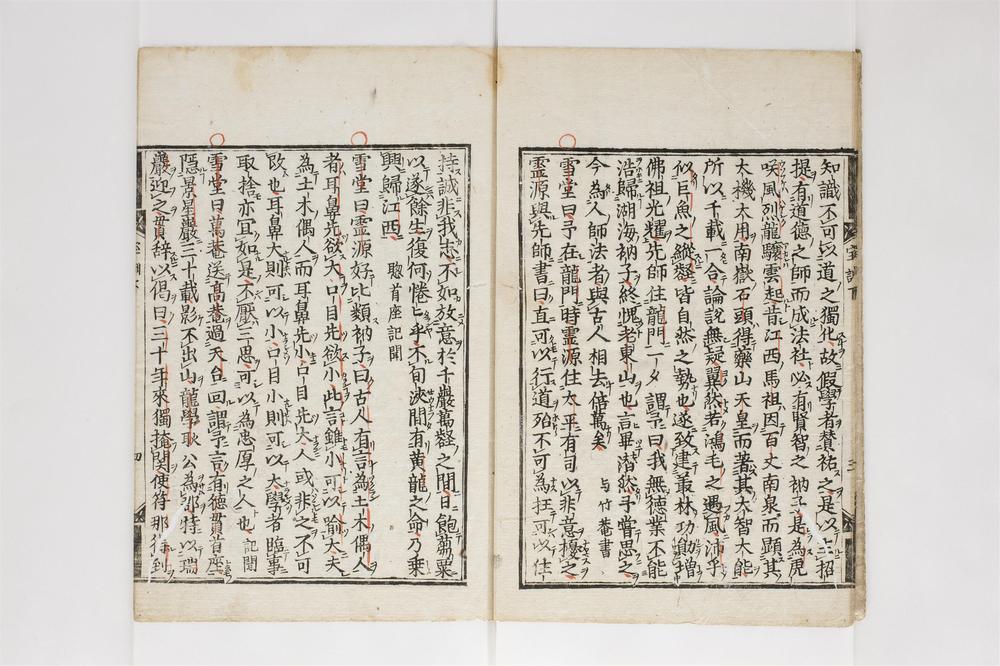 知識不可以道之獨化故假學者賛祐之是以主招
提有道德之師而成法社必有賢智之衲子是為虎
嘯風烈龍驤雲起昔江西馬祖因百丈南泉而顯其
大機大用南嶽石頭得藥山天皇而著其大智大能
所以千載一合論說無疑翼然若鴻毛之遇風沛乎
似巨魚之縱壑皆自然之勢也遂致建叢林功勳增
佛祖光耀先師住龍門一夕謂予曰我無德業不能
浩歸湖海衲子終愧老東山也言畢潸然予嘗思之
今為人師法者與古人相去倍萬矣 与竹菴書
雪堂曰予在龍門時靈源住太平有司以非意擾之
靈源與先師書曰直可以行道殆不可為枉可以住
持誠非我志不如放意於千巖萬壑之間日飽蒭粟
以遂餘生復何惓〻乎不旬浹間有黃龍之命乃乗
興歸江西 聰首座記聞
雪堂曰靈源好比類衲子曰古人有言為土木偶人
者耳鼻先欲大口目先欲小此言雖小可以喻大夫
為土木偶人而耳鼻先小口目先大人或非之不可
改也耳鼻大則可以小口目小則可以大學者臨事
取捨亦宜如是不厭三思可以為忠厚之人也 記聞
雪堂曰萬菴送高菴過天台回謂予言有德貫首座
隱景星巖三十載影不出山龍學耿公為郡特以瑞
巖迎之貫辞以偈曰三十年來獨掩關使符那得到